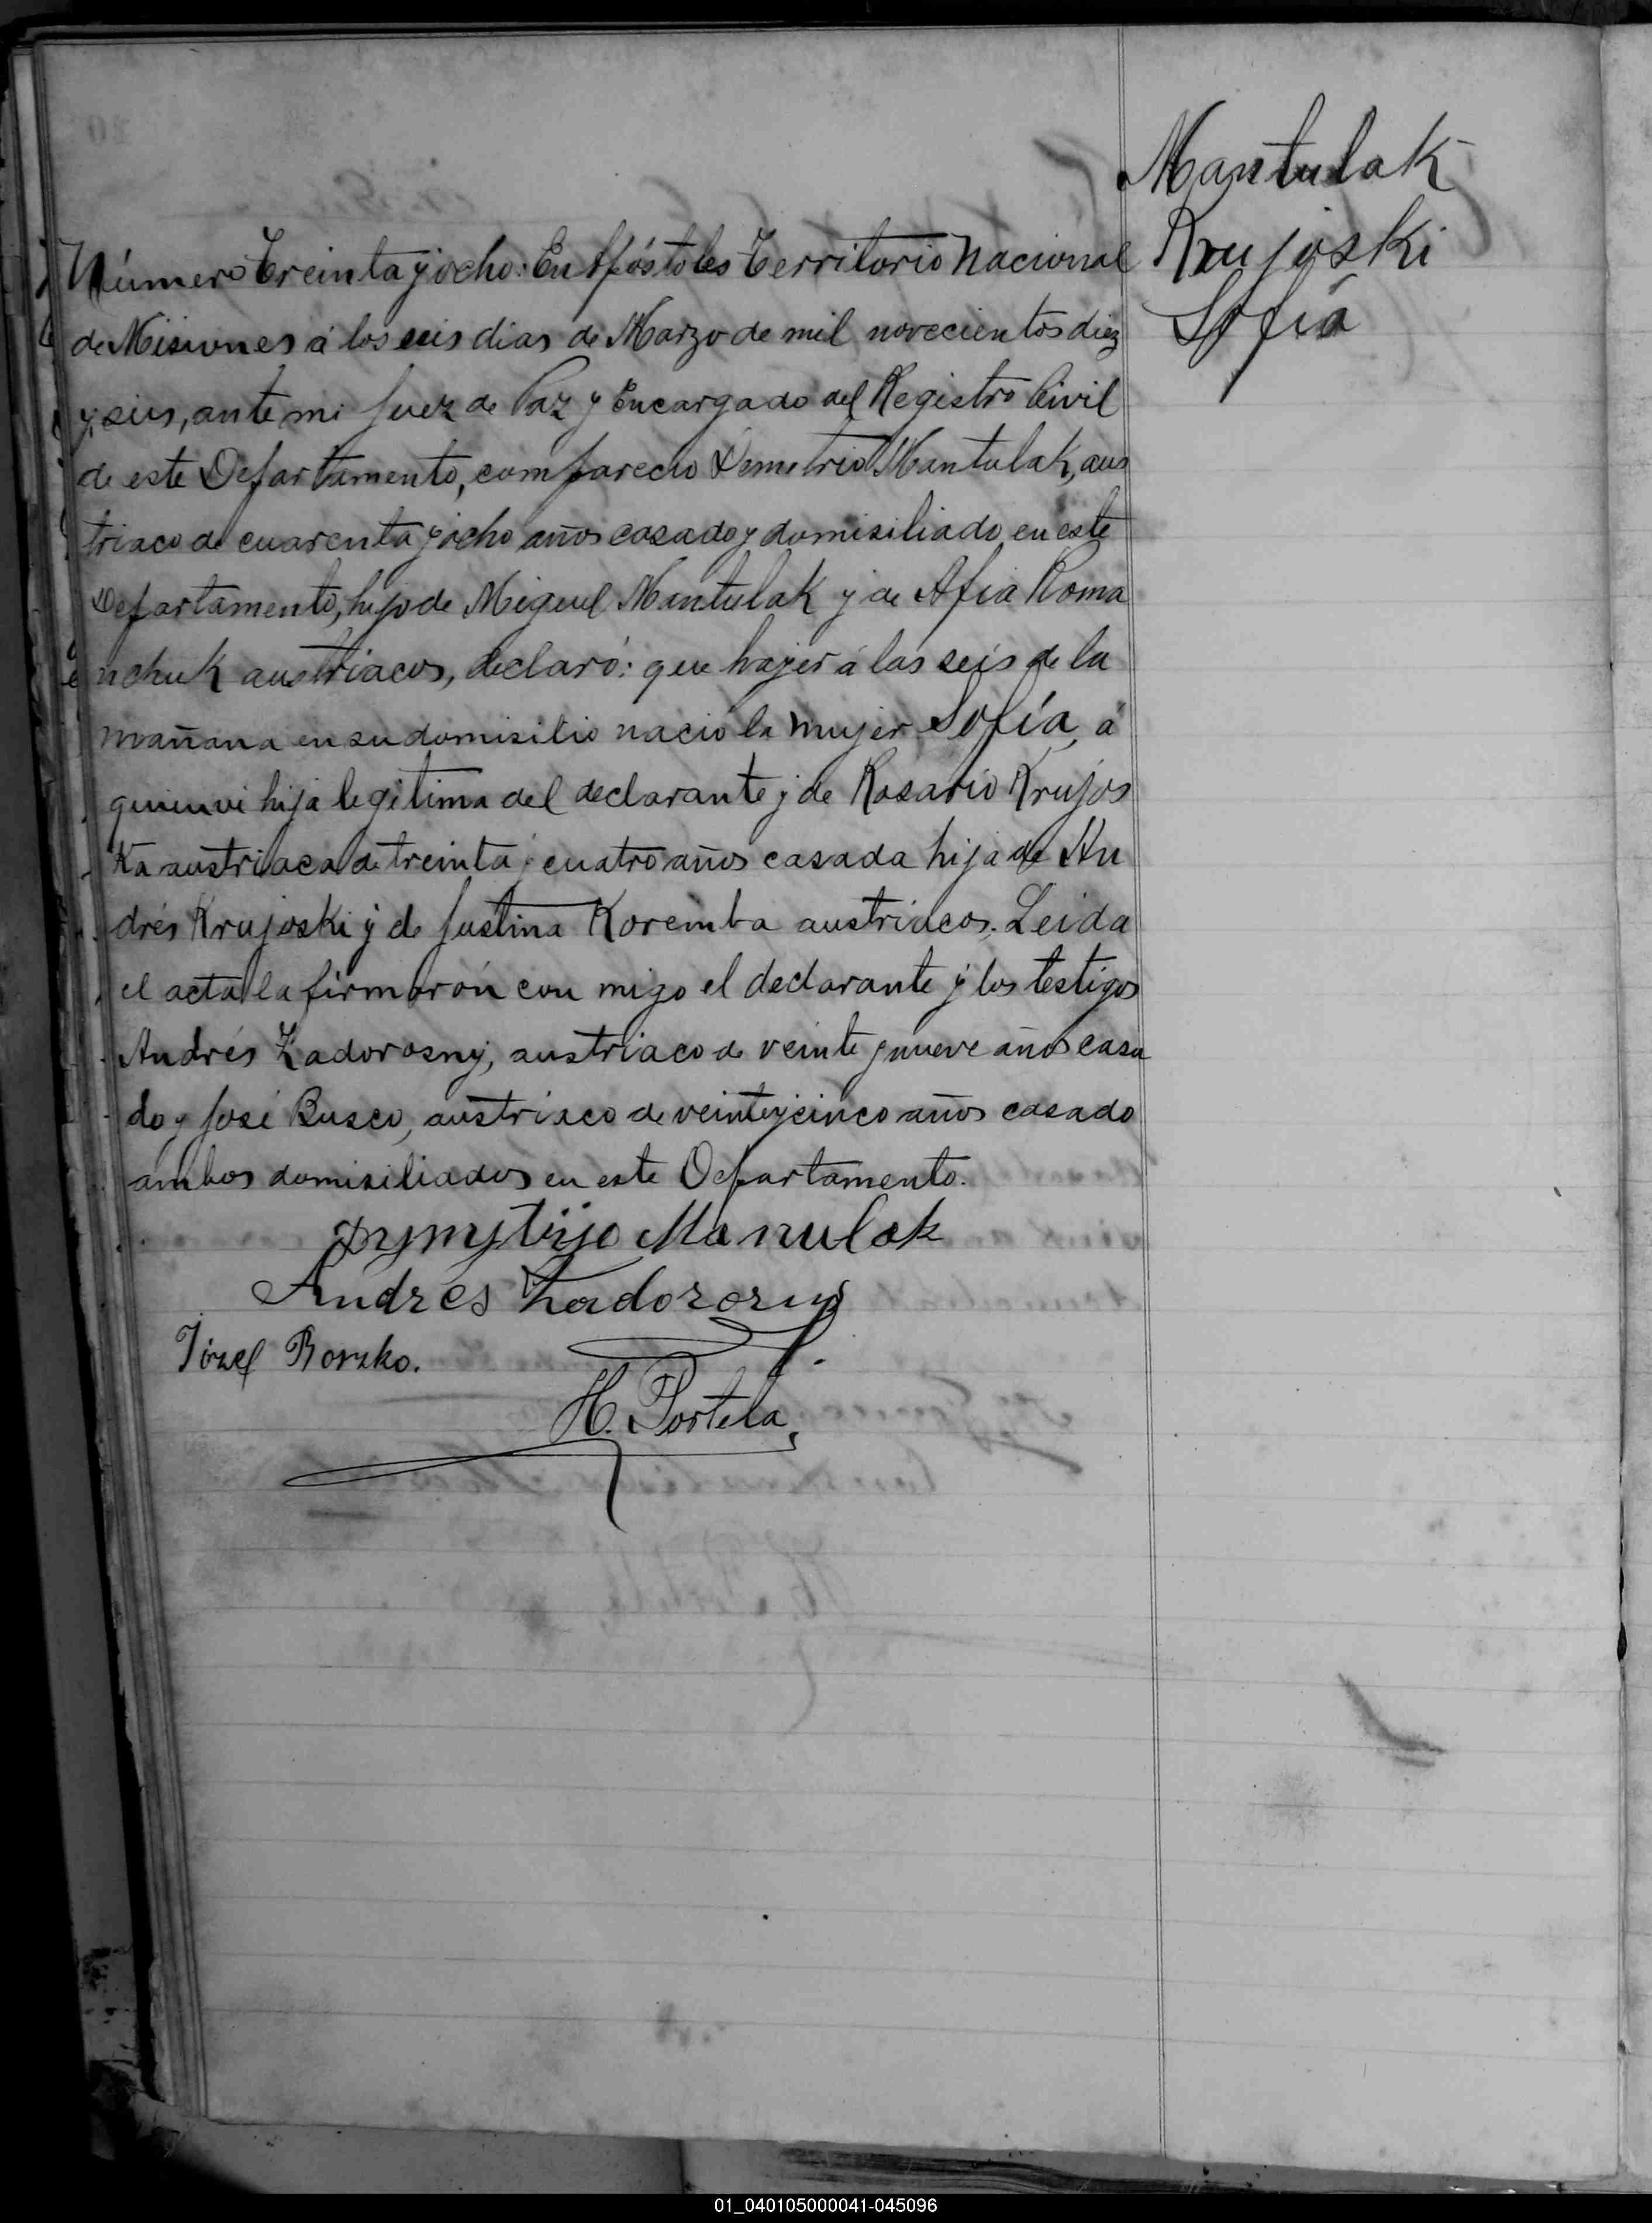 Mantulak
Krujoski
Sofía
Número Treinta y ocho: En Apóstoles Territorio Nacional
de Misiones á los seis dias de Marzo de mil novecientos diez
y seis, ante mi Juez de Paz y Encargado del Registro Civil
de este Departamento, compareció Demetrio Mantulak, aus
triaco de cuarenta y ocho años casado y domisiliado en este
Departamento, hijo de Miguel Mantulak y de Afia Roma
nchuk austriacos, declaró: que hayer á las seis de la
mañana en su domisilio nació la mujer Sofía, á
quien vi hija legitima del declarante y de Rosario Krujos
ka austriaca de treinta y cuatro años casada hija de An
drés Krujoski y de Justina Koremba austriacos. Leida
el acta la firmarón con migo el declarante y los testigos
Andrés Zadorosny, austriaco de veinte y nueve años casa
do y José Busco, austriaco de veinte y cinco años casado
ambos domisiliados en este Departamento.
Dymytrijo Manulak
Andrés Zadorozny
Józef Borzko.
H. Portela,
01_040105000041-045096